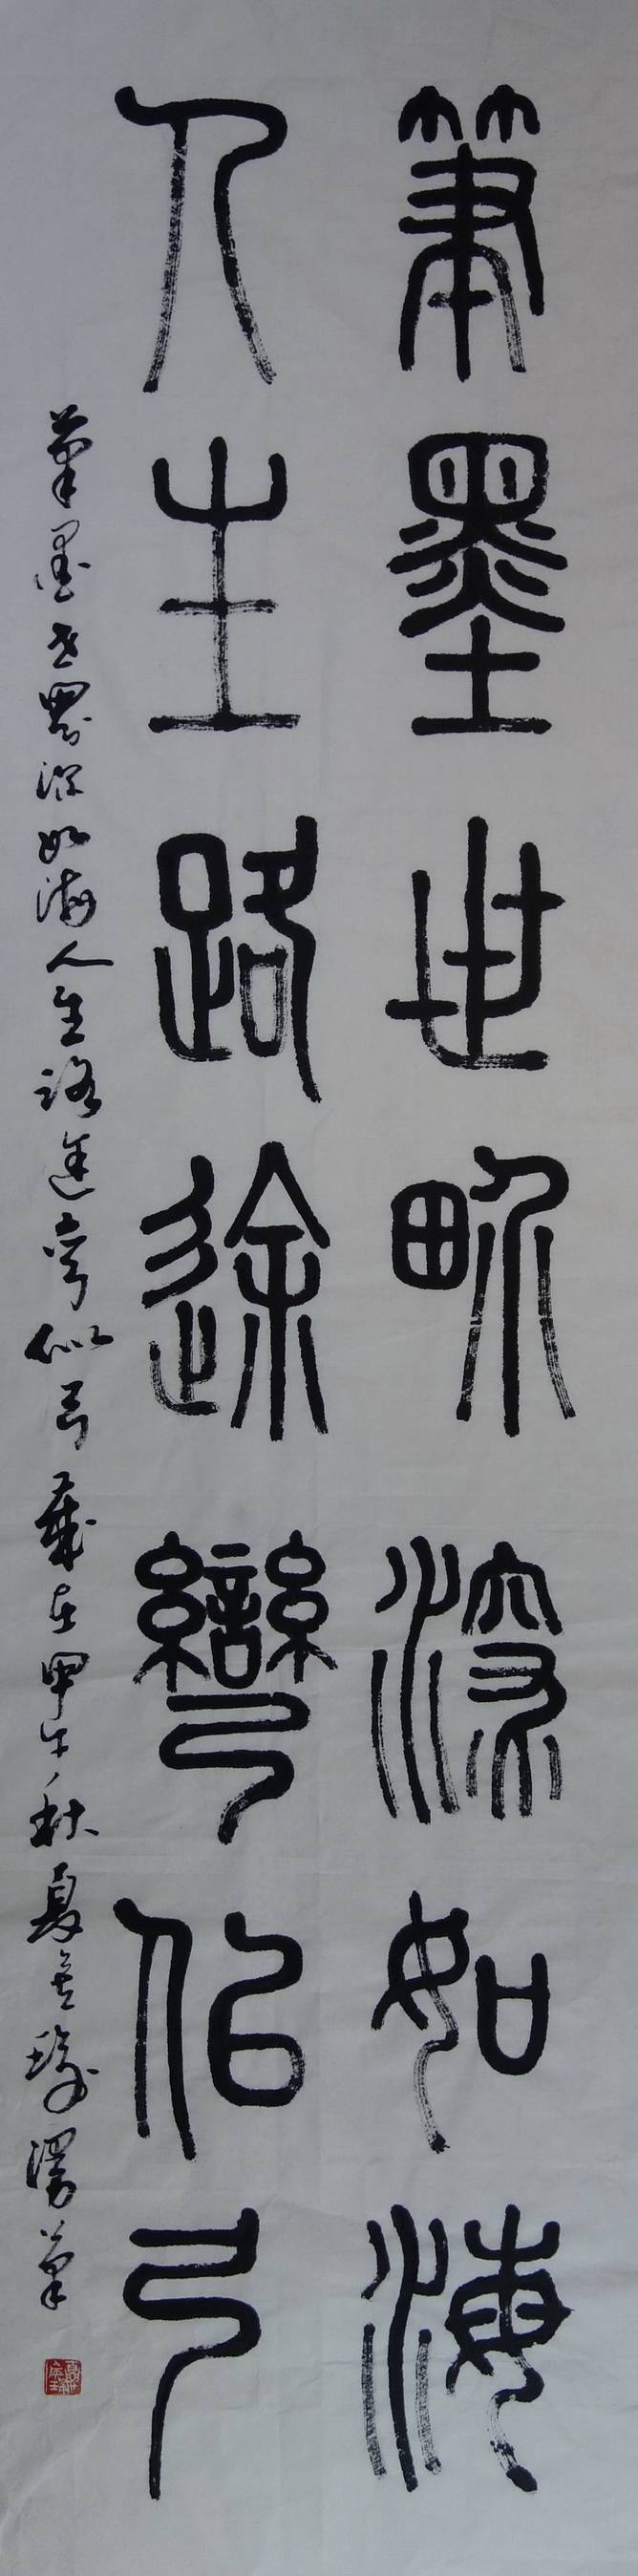 筆墨世界深如海
人生路途彎似弓
筆墨世界深如海人生路途彎似弓 歲在甲午秋夏金球漫筆